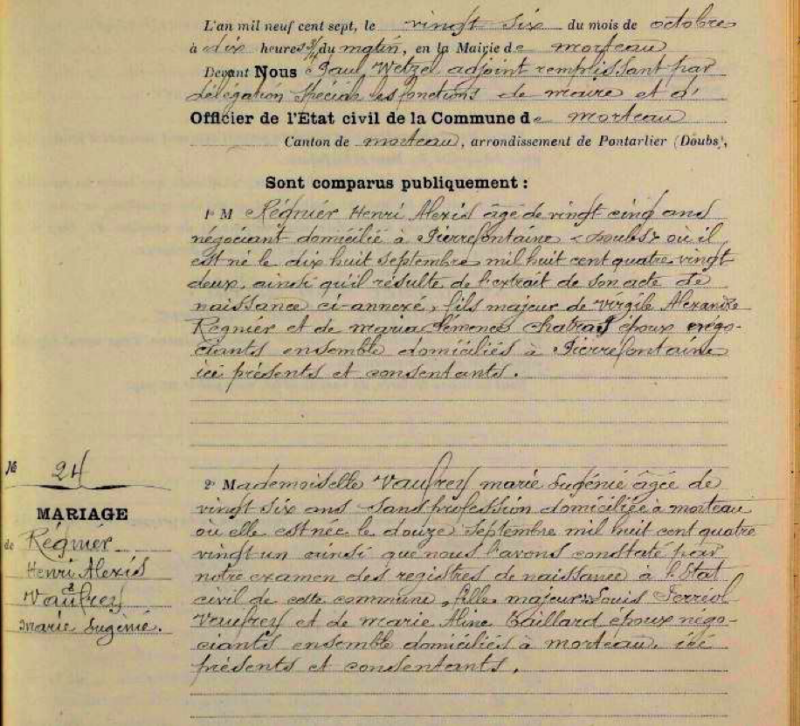 L'an mil neuf cent sept, le vingt six du mois de octobre
à dix heures 3/4 du matin, en la Mairie de morteau
Devant Nous Paul Wetzel adjoint remplissant par
délégation spéciale les fonctions de maire et d'
Officier de l'Etat civil de la Commune de morteau
Canton de morteau, arrondissement de Pontarlier (Doubs),
Sont comparus publiquement :
1° M Régnier Henri Alexis âgé de vingt cinq ans
négociant domicilié à Pierrefontaine (Doubs) où il
est né le dix huit septembre mil huit cent quatre vingt
deux, ainsi qu'il résulte de l'extrait de son acte de
naissance ci-annexé, fils majeur de Virgile Alexandre
Régnier et de maria Clémence époux négo-
ciants ensemble domiciliés à Pierrefontaine
ici présents et consentants.
N° 24
MARIAGE
de Régnier
Henri Alexis
&
Vaufrey
marie Eugénie.
2° Mademoiselle Vaufrey marie Eugénie âgée de
vingt six ans sans profession domiciliée à morteau
où elle est née le douze septembre mil huit cent quatre
vingt un ainsi que nous l'avons constaté par
notre examen des registres de naissance à l'Etat
civil de cette commune, fille majeure Louis
Vaufrey et de marie Aline Gaillard époux négo-
ciants ensemble domiciliés à morteau, ici
présents et consentants.